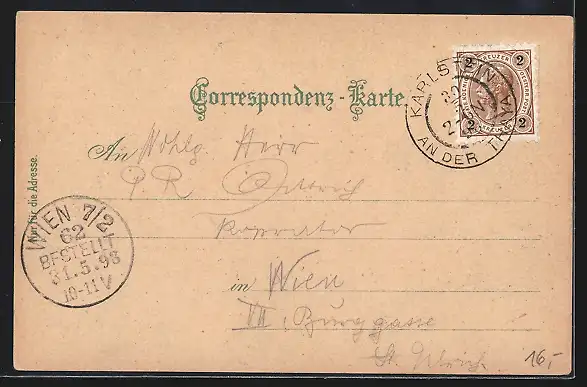 Correspondenz-Karte.
2 KREUZER 2
2 2
KARLSTEIN
AN DER THAYA
An Wohlg. Herr
P. R.
in Wien
VII, Burggasse
St. Ulrich
Nur für die Adresse.
WIEN 7/2
62
BESTELLT
31.5.98
10-11V
16,-